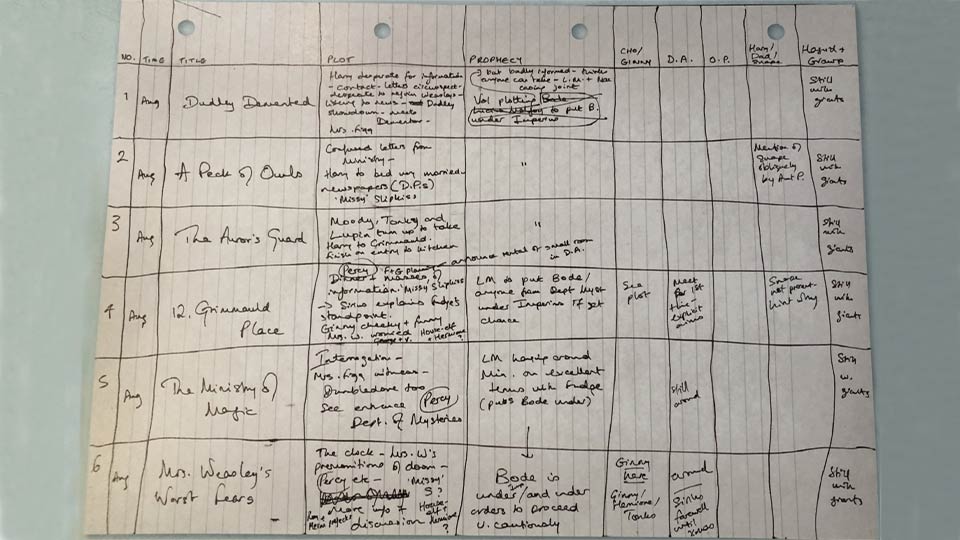 NO. TIME TITLE PLOT PROPHECY CHO/ GINNY D.A. O.P. Harry/ Dad/ Snape Hagrid + Grawp
1 Aug Dudley Demented
Harry desperate for information
- Contact - letters circumspect -
desperate to rejoin Weasleys -
listening to news - Dudley
showdown - meets
Dementor -
Mrs. Figg
but badly informed - thinks
anyone can take - L.M. + Nott
casing joint
Vol plotting Bode
to put B.
under Imperius
Still
with
giants
2 Aug A Peck of Owls
Confused letters from
Ministry -
Harry to bed very worried -
newspapers (D.P.s)
'Missy' Slipkiss
"
Mention of
Snape
obliquely
by Aunt P.
Still
with
giants
3 Aug The Auror's Guard
Moody, Tonks and
Lupin turn up to take
Harry to Grimmauld.
finish on entry to kitchen
"
Still
with
giants
4 Aug 12, Grimmauld
Place
Percy F+G plans announce rental of small room
in D.A.
Dinner + masses of
information 'Missy' Slipkiss
→ Sirius explains Fudge's
standpoint.
Ginny cheeky + funny
Mrs. W. worried House-elf
+ Hermione?
LM to put Bode/
anyone from Dept Myst
under Imperius if get
chance
See
plot
Meet
for 1st
time -
explicit
aims
Snape
not present -
hint why
Still
with
giants
5 Aug The Ministry of
Magic
Interrogation -
Mrs. Figg witness -
Dumbledore too
See entrance Percy
Dept. of Mysteries
LM hanging around
Min. on excellent
terms with Fudge
(puts Bode under)
Still
around
Still
w.
giants
6 Aug Mrs. Weasley's
Worst Fears
The clock - Mrs. W's
premonitions of doom -
Percy etc - 'Missy'
S?
more info + House-
elf +
discussion Hermione
?
Ron +
Herm prefects
Bode is
under Imp/and under
orders to proceed
v. cautiously
Ginny
here
Ginny/
Hermione/
Tonks
around
Sirius
farewell
until
Still
with
giants